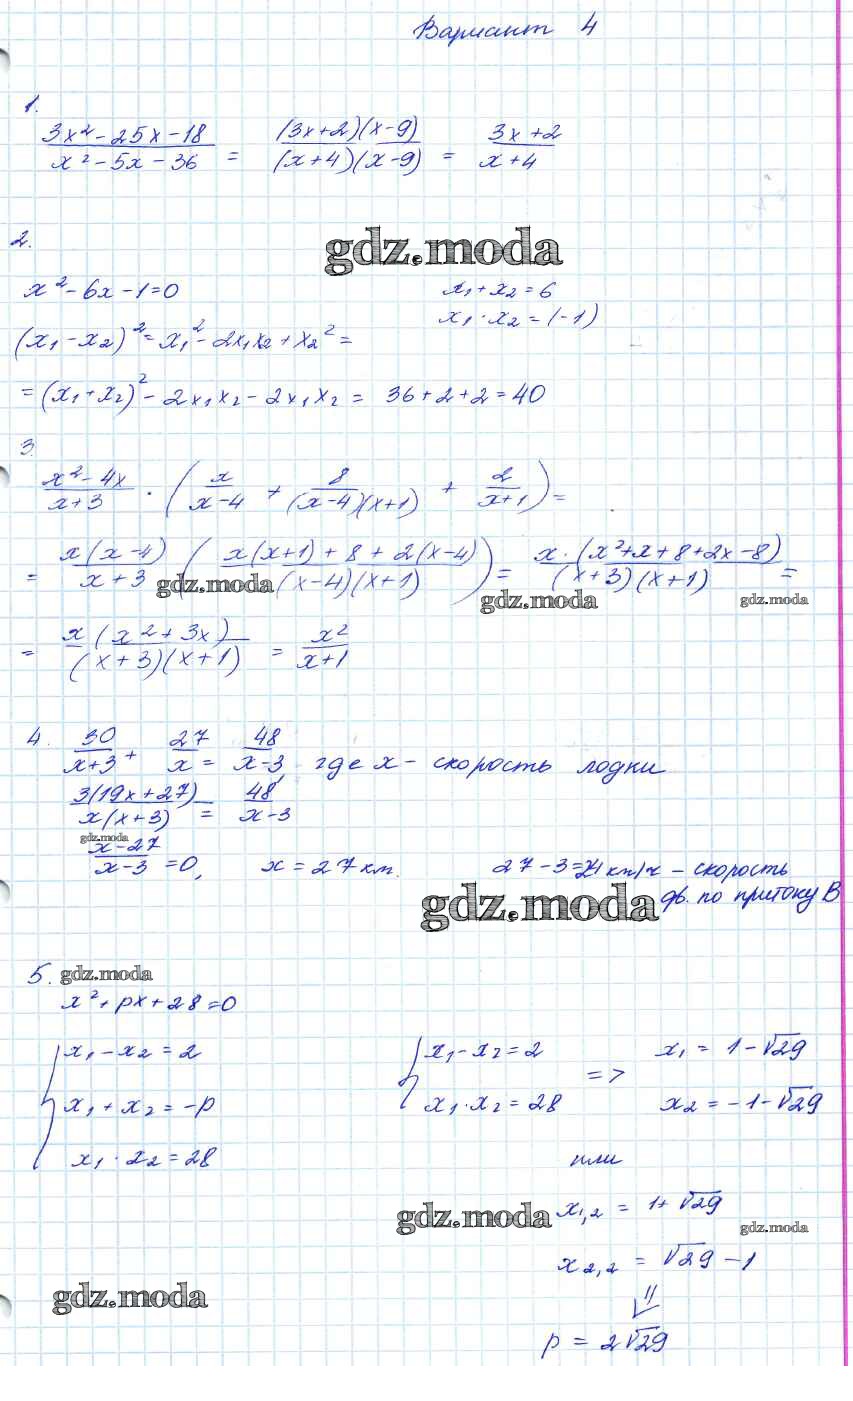 Вариант 4
1.
3x² - 25x - 18 / x² - 5x - 36 = (3x+2)(x-9) / (x+4)(x-9) = 3x+2 / x+4
2.
gdz.moda
x² - 6x - 1 = 0    x₁ + x₂ = 6
x₁ · x₂ = (-1)
(x₁ - x₂)² = x₁² - 2x₁x₂ + x₂² =
= (x₁ + x₂)² - 2x₁x₂ - 2x₁x₂ = 36 + 2 + 2 = 40
3.
x² - 4x / x+3 · ( x / x-4 + 8 / (x-4)(x+1) + 2 / x+1 ) =
= x(x-4) / x+3 ( x(x+1) + 8 + 2(x-4) / (x-4)(x+1) ) = x·(x²+x+8+2x-8) / (x+3)(x+1) =
gdz.moda gdz.moda gdz.moda
= x(x²+3x) / (x+3)(x+1) = x² / x+1
4. 30 / x+3 + 27 / x = 48 / x-3, где x - скорость лодки
3(19x+27) / x(x+3) = 48 / x-3
gdz.moda
x-27 / x-3 = 0, x = 27 км. 27-3=24 км/ч - скорость
gdz.moda дв. по притоку В
5. gdz.moda
x² + px + 28 = 0
{ x₁ - x₂ = 2    { x₁ - x₂ = 2 => x₁ = 1 - √29
x₁ + x₂ = -p
x₁ · x₂ = 28    x₂ = -1 - √29
x₁ · x₂ = 28    или
gdz.moda x₁,₂ = 1 + √29
gdz.moda
x₂,₂ = √29 - 1
gdz.moda
p = 2√29